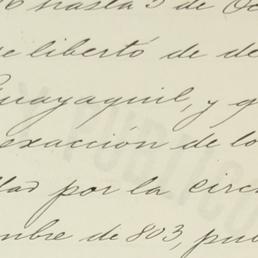 hasta 5 de Oc
libertó de de
Guayaquil, y q
exacción de lo
dad por la circ
mbre de 803, pu